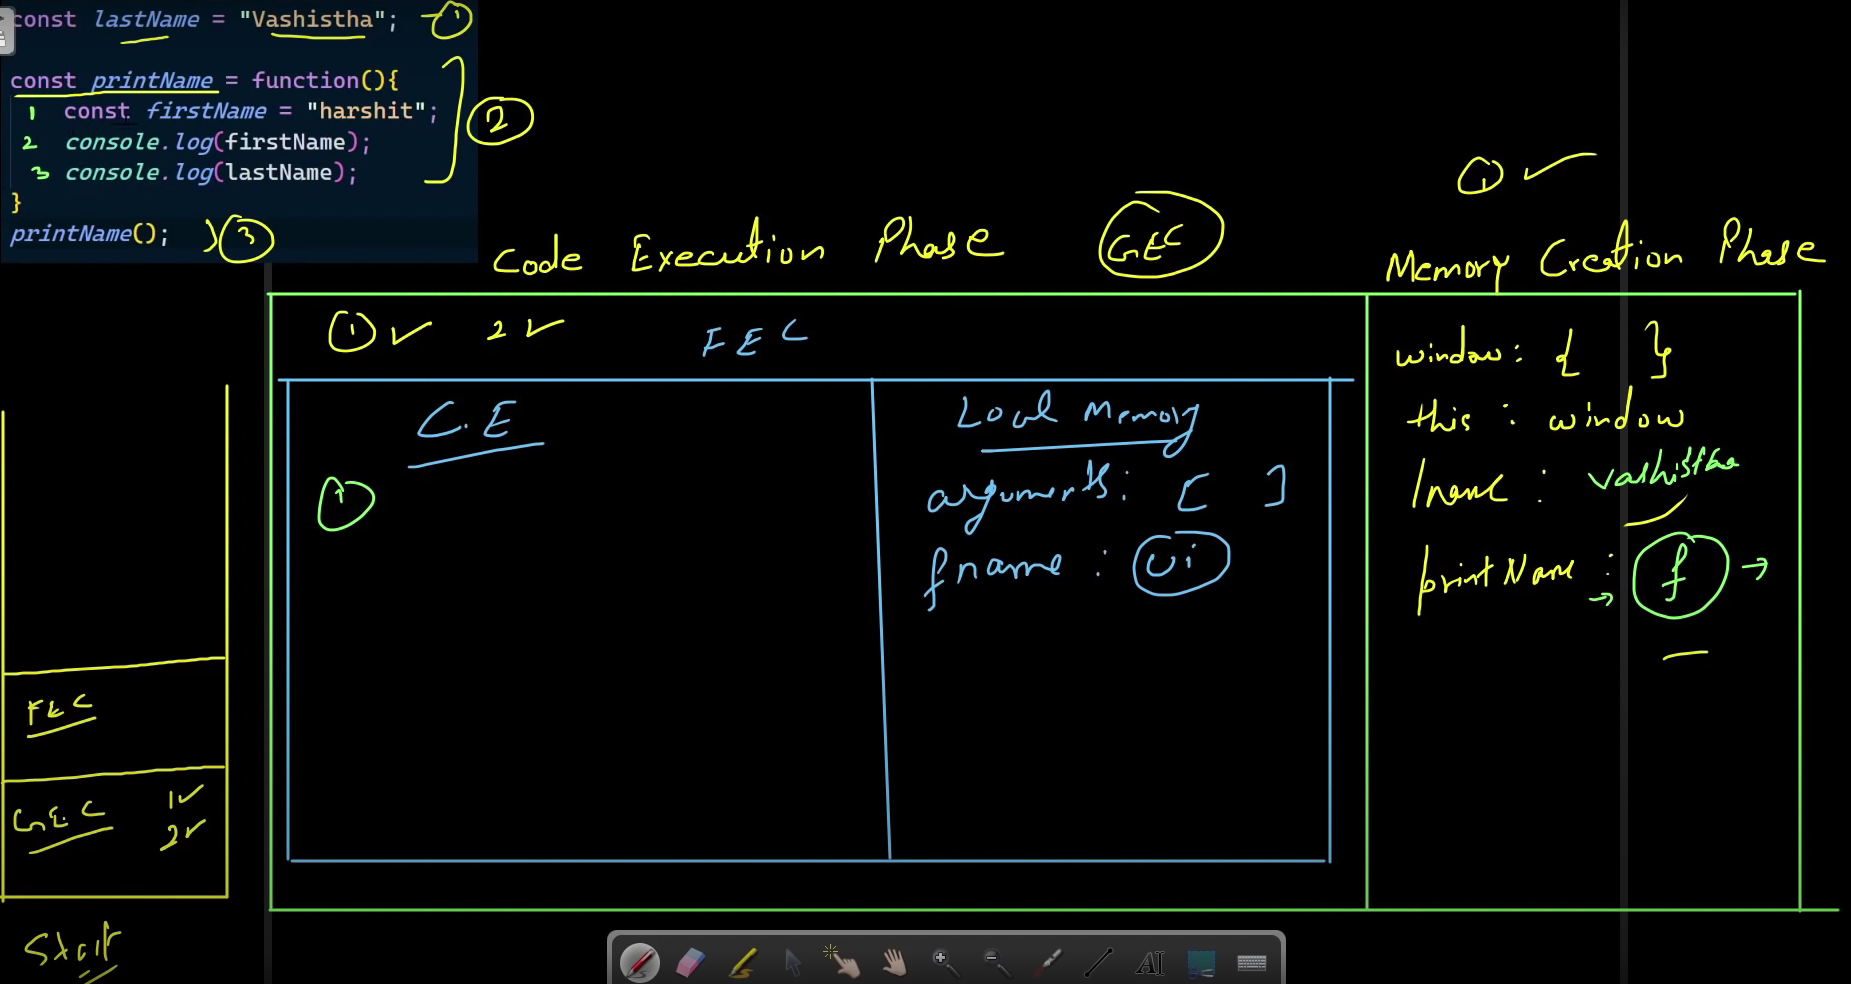 const lastName = "Vashistha"; 1
const printName = function(){
1 const firstName = "harshit";
2 console.log(firstName);
3 console.log(lastName);
}
2
printName(); 3
1
Code Execution Phase GEC
Memory Creation Phase
1 2 FEC
C.E
1
Local Memory
arguments: [ ]
fname : ui
window: { }
this : window
lname : vashistha
printName : f
FEC
GEC 1
2
Start
AI